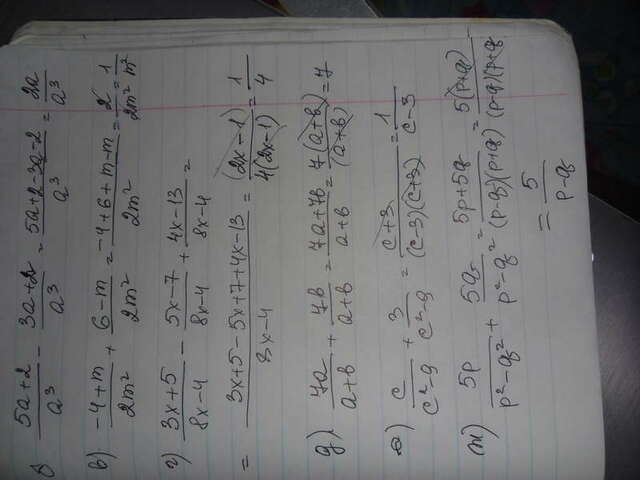 б) (5a+2)/a³ − (3a+2)/a³ = (5a+2−3a−2)/a³ = 2a/a³
в) (−4+m)/2m² + (6−m)/2m² = (−4+6+m−m)/2m² = 2/2m² = 1/m²
г) (3x+5)/(8x−4) − (5x−7)/(8x−4) + (4x−13)/(8x−4) =
= (3x+5−5x+7+4x−13)/(8x−4) = (2x−1)/4(2x−1) = 1/4
д) 7a/(a+b) + 7b/(a+b) = (7a+7b)/(a+b) = 7(a+b)/(a+b) = 7
е) c/(c²−9) + 3/(c²−9) = (c+3)/(c−3)(c+3) = 1/(c−3)
ж) 5p/(p²−q²) + 5q/(p²−q²) = (5p+5q)/(p−q)(p+q) = 5(p+q)/(p−q)(p+q)
= 5/(p−q)